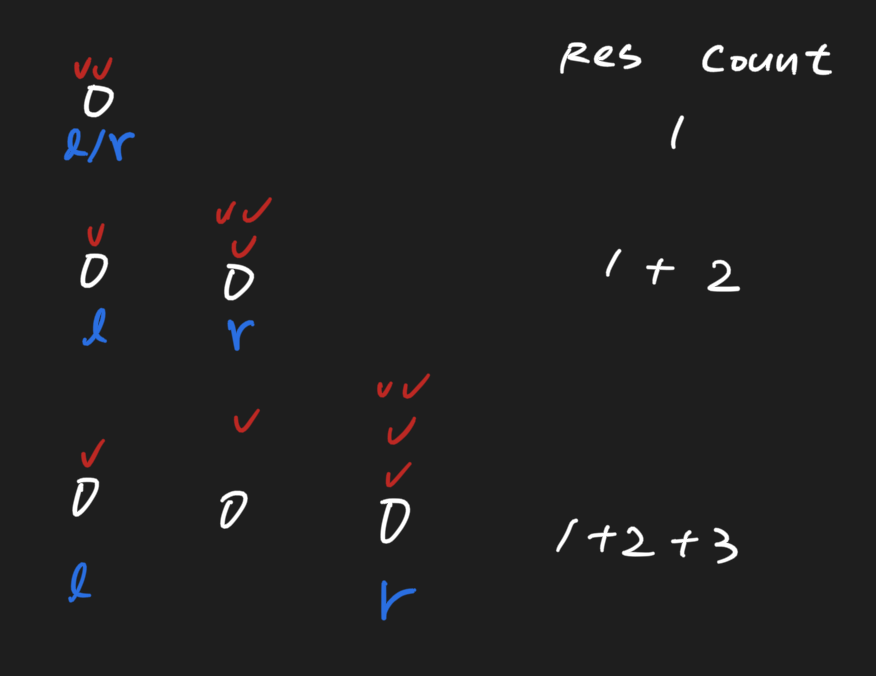 Res Count
0
l/r
1
0 0
l r
1 + 2
0 0 0
l r
1+2+3